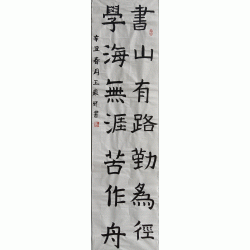 書山有路勤為徑
學海無涯苦作舟
辛丑春月